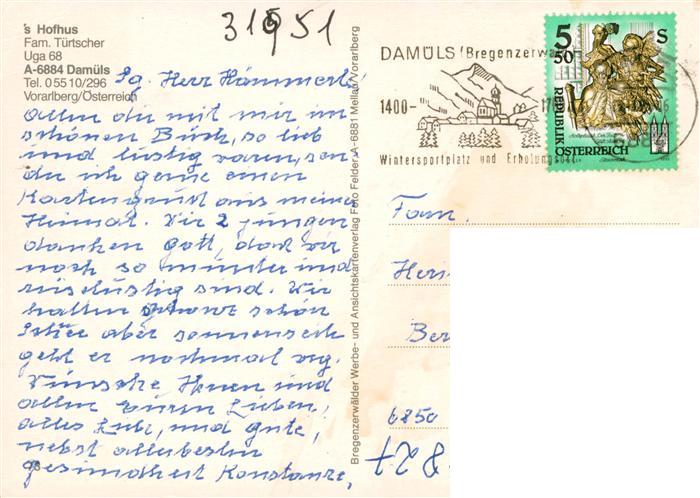 31951
's Hofhus
Fam. Türtscher
Uga 68
A-6884 Damüls
Tel. 05510/296
Vorarlberg/Österreich
Sg. Herr Hämmerle
allen die mit mir im
schönen Buch, so lieb
und lustig waren, sen-
de ich gerne einen
Kartengruß aus meiner
Heimat. Wir 2 jungen
danken Gott, daß wir
noch so munter und
reiselustig sind. Wir
hatten schon
Schnee aber sonnenseits
geht er nochmal weg.
Wünsche Ihnen und
allen Ihren Lieben,
alles Liebe, und gute,
nebst allerbester
gesundheit Konstanze,
Bregenzerwälder Werbe- und Ansichtskartenverlag Foto Felder, A-6881 Mellau/Vorarlberg
DAMÜLS (Bregenzerwa
1400-
Wintersportplatz und Erholungs
5 50 S
REPUBLIK
ÖSTERREICH
Fam.
Her
Ber
6850